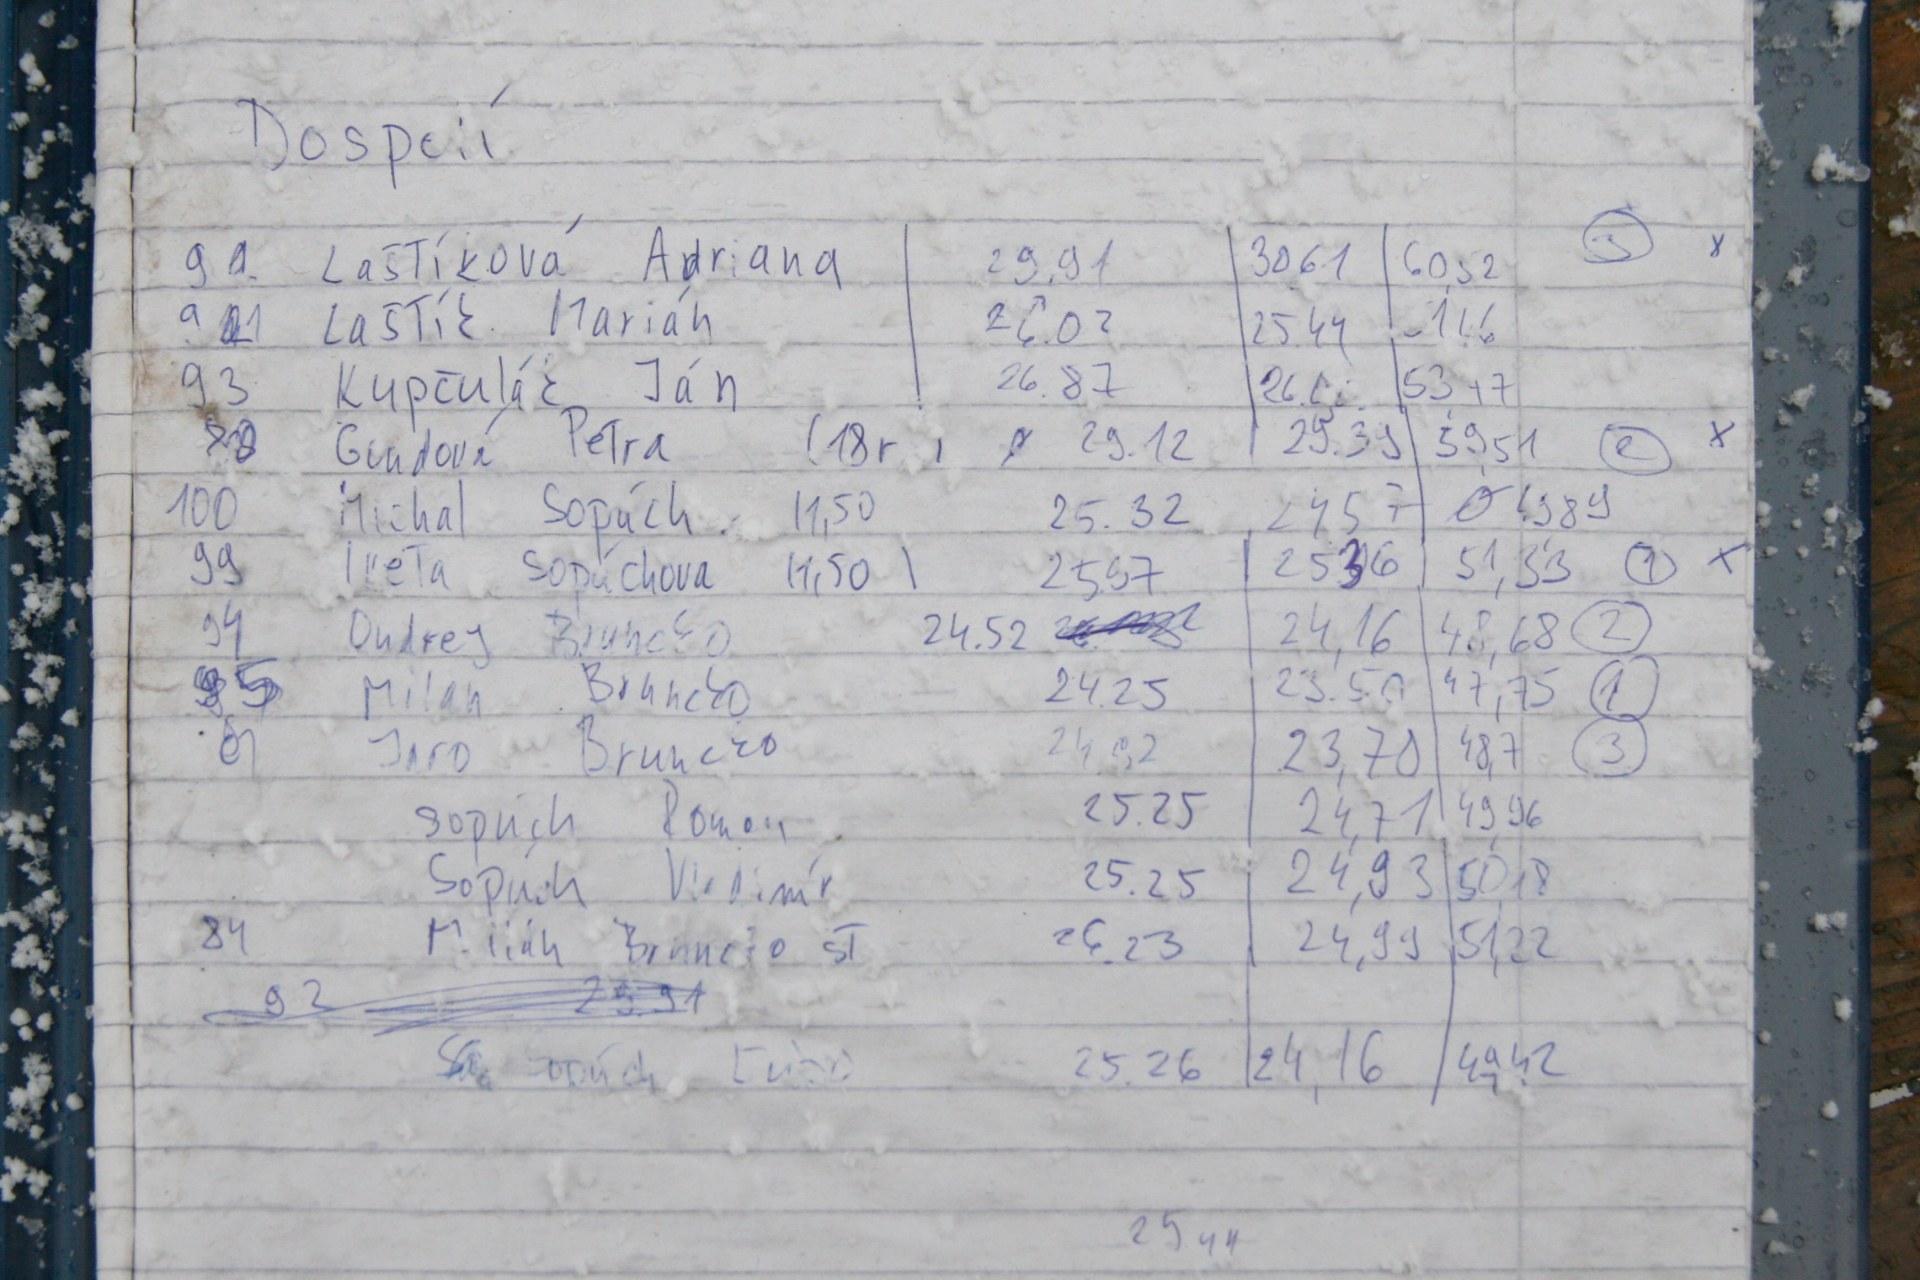 Dospelí
92. Laštíková Adriana 29,91 30,61 60,52 3 x
91 Laštík Marián 26,02 25,44 51,46
93 Kupčulák Ján 26.87 53,47
Gundová Petra (18r) 29.12 29.39 59,51 2 x
100 Michal Sopúch 11,50 25.32 24,57 49,89
99 Iveta Sopúchova 11,50 25,97 25,36 51,33 1 x
94 Ondrej Brunčko 24.52 24,16 48,68 2
95 Milan Brunčko 24.25 23.50 47,75 1
Jaro Brunčko 23,70 48,7 3
Sopúch Roman 25.25 24,71 49,96
Sopúch Vladimír 25.25 24,93 50,18
84 Milián Brunčko st 26.23 24,99 51,22
92 29.91
Sopúch 25.26 24,16 49,42
25 44